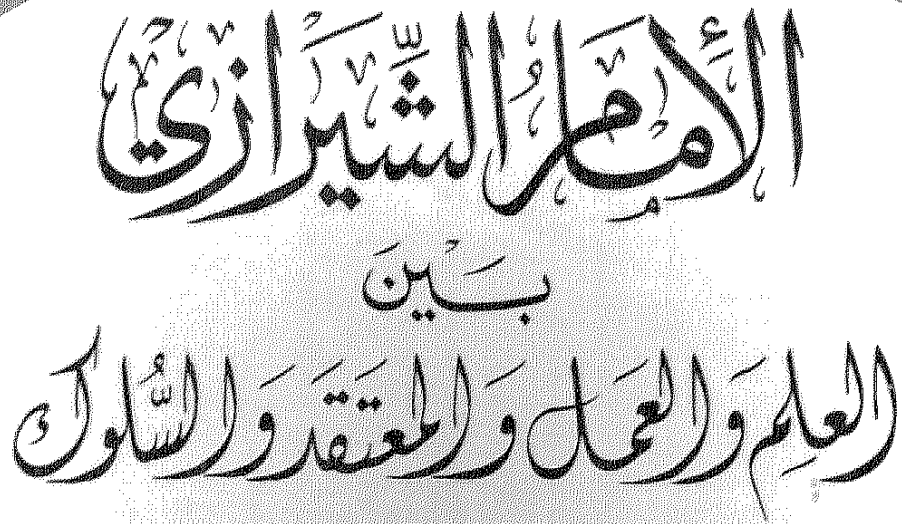 الإمام الشيرازي
بين
العلم والعمل والمعتقد والسلوك